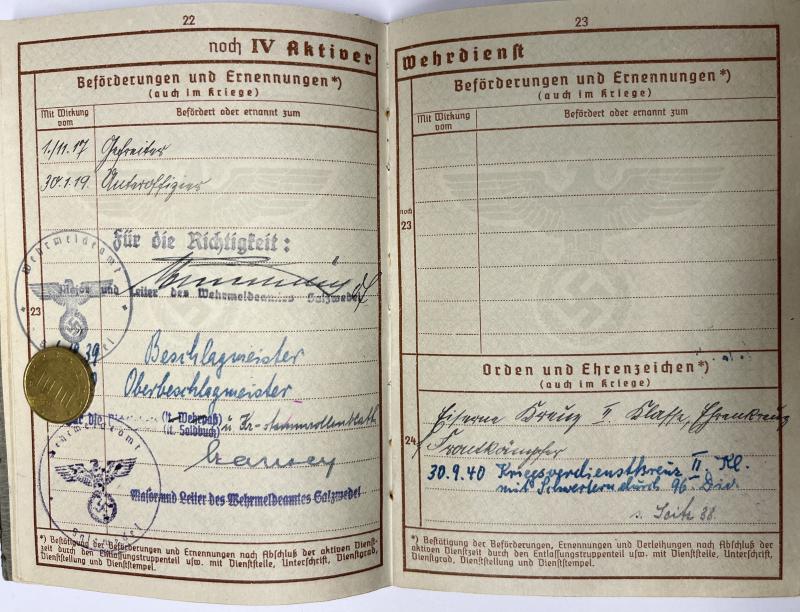 22
noch IV Aktiver
Beförderungen und Ernennungen*)
(auch im Kriege)
Mit Wirkung vom
Befördert oder ernannt zum
1./11.17 Gefreiter
30.1.19. Unteroffizier
Für die Richtigkeit:
Major und Leiter des Wehrmeldeamtes Salzwedel
Wehrmeldeamt
23
39 Beschlagmeister
Oberbeschlagmeister
(lt. Wehrpaß)
(lt. Soldbuch) u. Kr-Stammrollenblatt
Major und Leiter des Wehrmeldeamtes Salzwedel
Wehrmeldeamt
Salzwedel
*) Bestätigung der Beförderungen und Ernennungen nach Abschluß der aktiven Dienst-
zeit durch den Entlassungstruppenteil usw. mit Dienststelle, Unterschrift, Dienstgrad,
Dienststellung und Dienststempel.
23
Wehrdienst
Beförderungen und Ernennungen*)
(auch im Kriege)
Mit Wirkung vom
Befördert oder ernannt zum
noch
23
Orden und Ehrenzeichen*)
(auch im Kriege)
Eiserne Kreuz II. Klasse, Ehrenkreuz
24
Frontkämpfer
30.9.40 Kriegsverdienstkreuz II. Kl.
mit Schwertern durch 96. Div.
s. Seite 38.
*) Bestätigung der Beförderungen, Ernennungen und Verleihungen nach Abschluß der
aktiven Dienstzeit durch den Entlassungstruppenteil usw. mit Dienststelle, Unterschrift,
Dienstgrad, Dienststellung und Dienststempel.